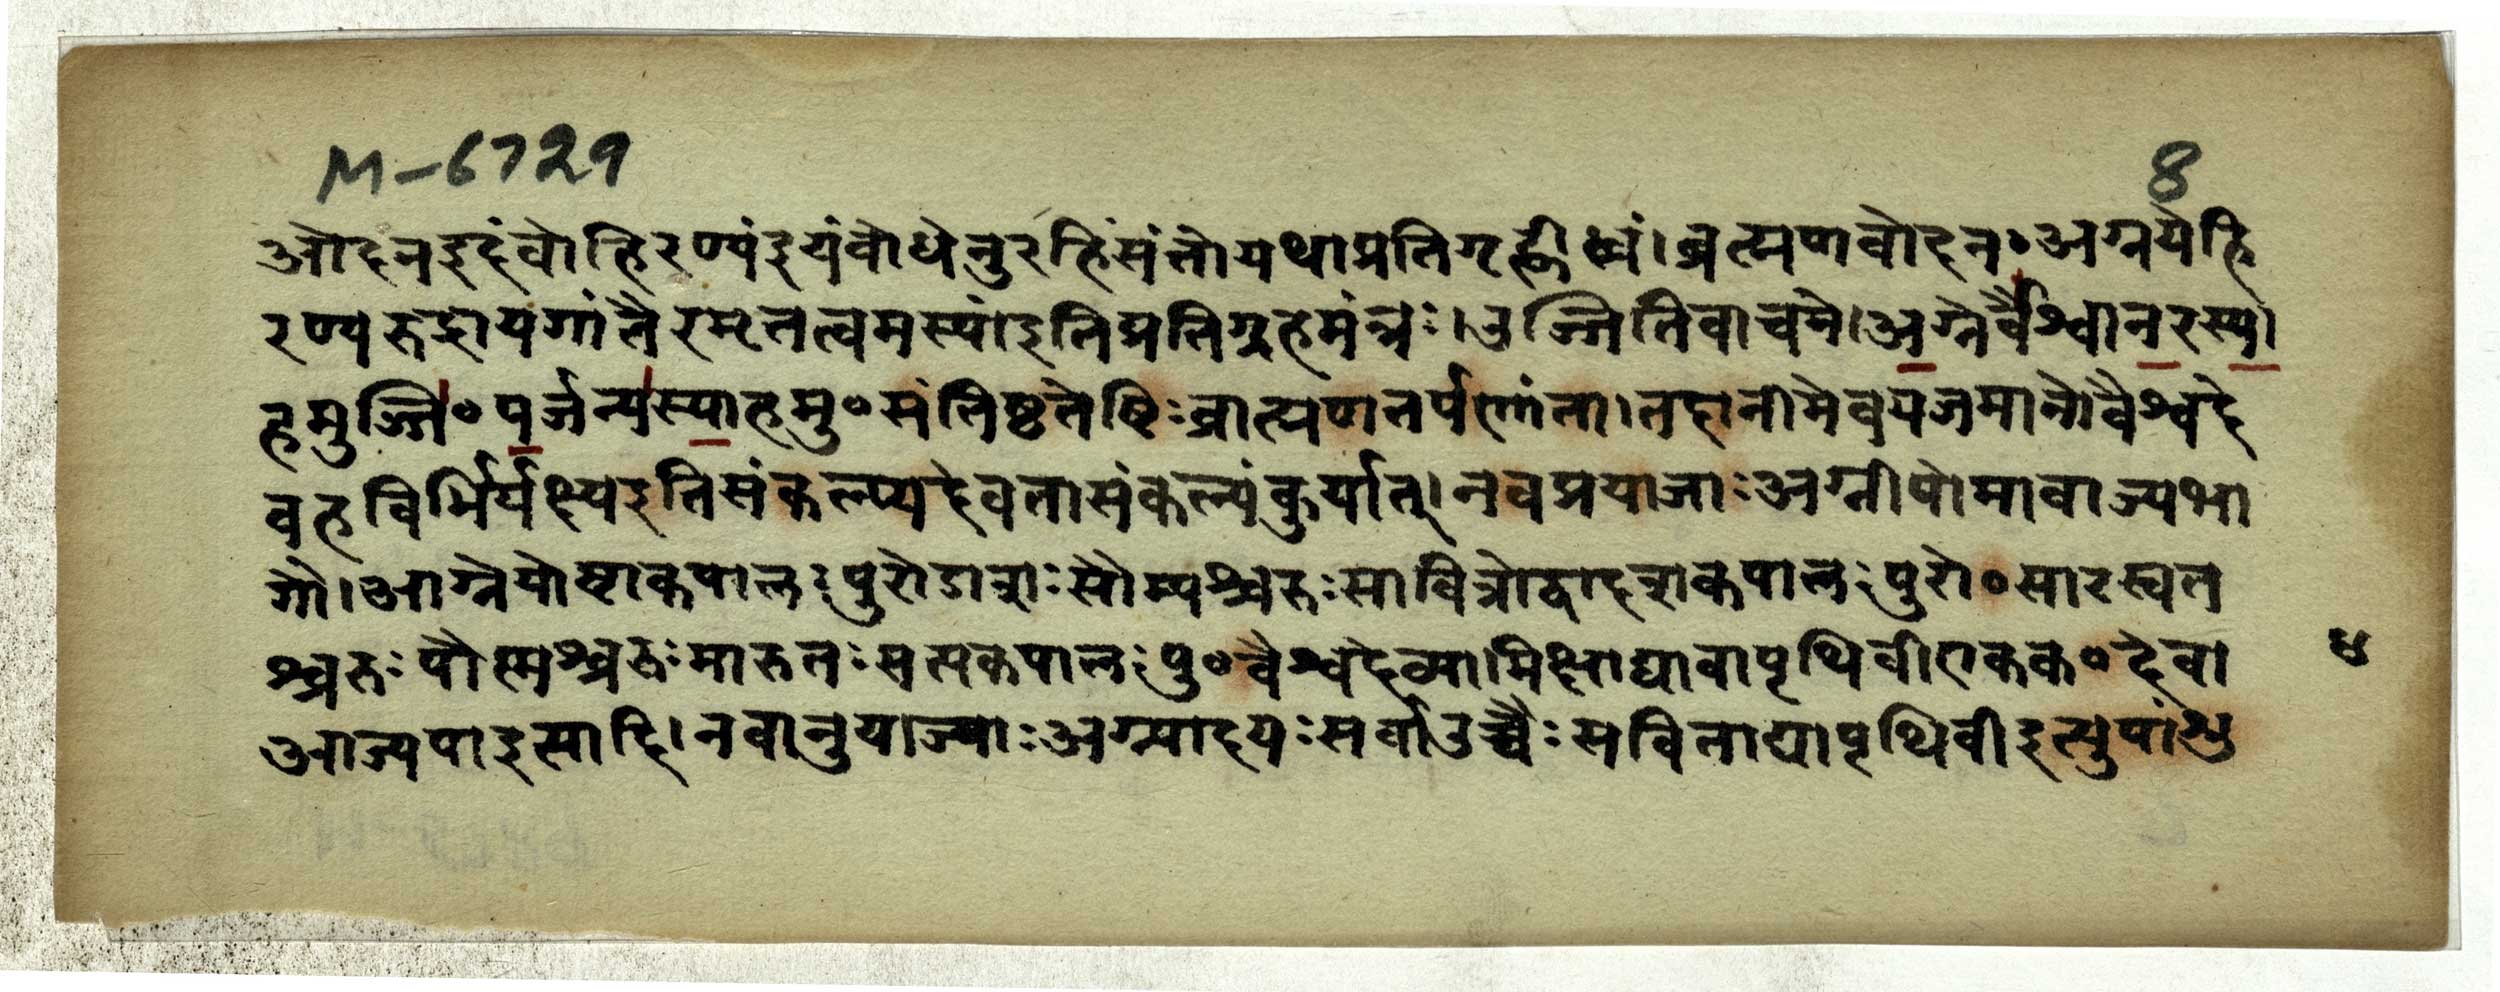 M-6729
8
ओदनइदंवोहिरण्यंइयंवोधेनुरहिंसंतोयथाप्रतिगृह्णीध्वं।ब्रह्मणवोदन॰अग्नयेहि
रण्यरुद्रायगांतैरमृतत्वमस्यां।इतिप्रतिग्रहमंन्त्रः।उज्जितिवाचने।अग्नेर्वैश्वानरस्या
हमुज्जि॰पर्जन्यस्याहमु॰संतिष्ठतेष्टिःब्राह्मणतर्पणांता।तदानीमेवयजमानोवैश्वदे
वहविर्भिर्यक्ष्यइतिसंकल्प्यदेवतासंकल्प्यंकुर्यात्।नवप्रयाजाःअग्नीषोमावाज्यभा
गौ।आग्नेयोष्टाकपालःपुरोडाशःसौम्यश्चरुःसावित्रोद्वादशकपालःपुरो॰सारस्वत
श्चरुःपौष्मश्चरुःमारुतःसप्तकपालःपु॰वैश्वदेव्यामिक्षाद्यावापृथिवीएकक॰देवा
आज्यपाइत्यादि।नवानुयाज्याःअग्न्यादयःसर्वाउच्चैःसविताद्यापृथिवीइत्युपांशु
४